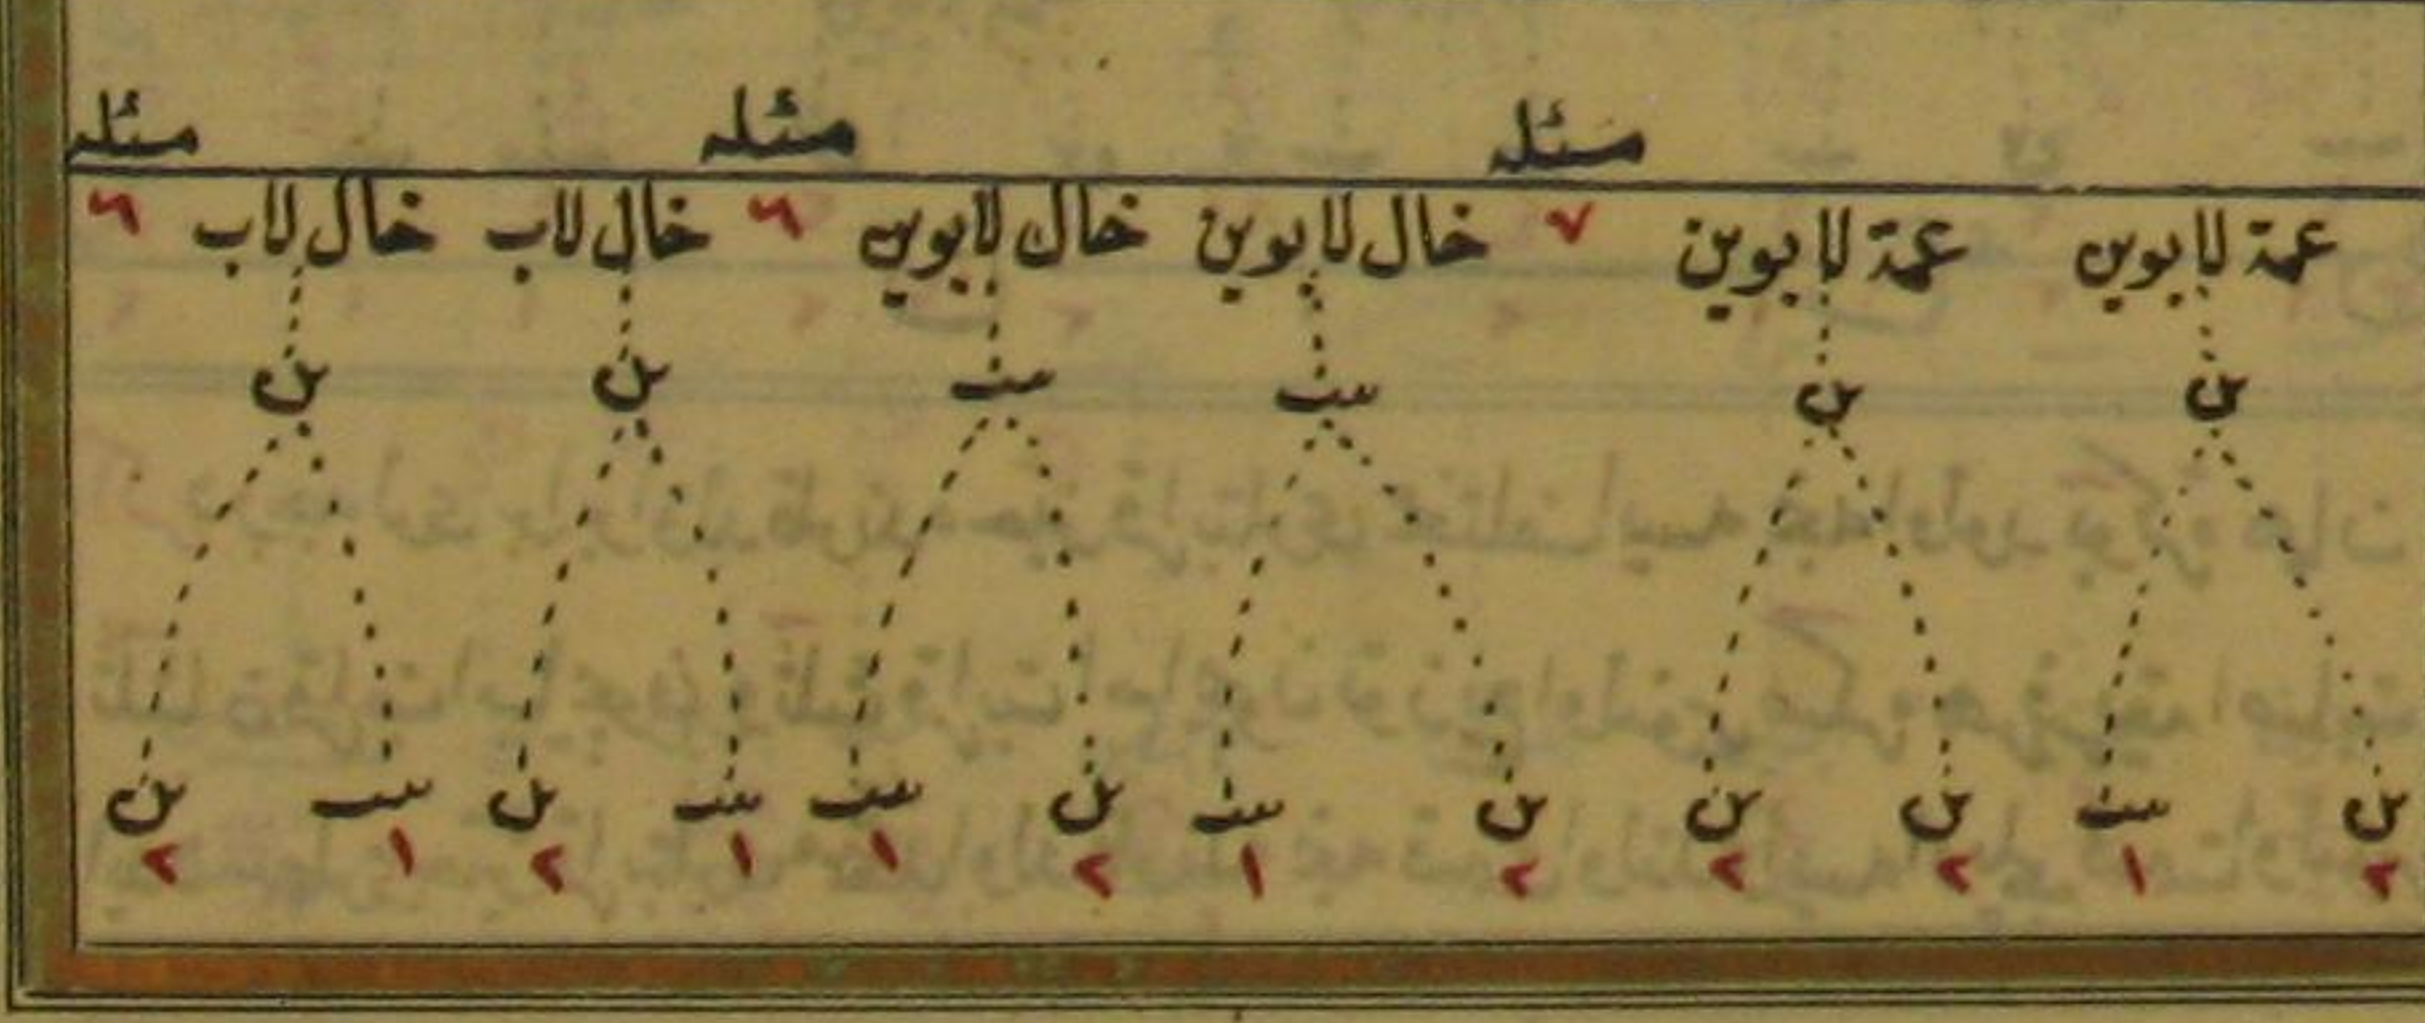 مسئله مسئله مسئله
عمة لابوين عمة لابوين ٧ خال لابوين خال لابوين ٦ خال لاب خال لاب ٦
بن بن بنت بنت بن بن
بن بنت بن بن بن بنت بن بنت بنت بن بنت بن
٢ ١ ٢ ٢ ٢ ١ ٢ ١ ١ ٢ ١ ٢